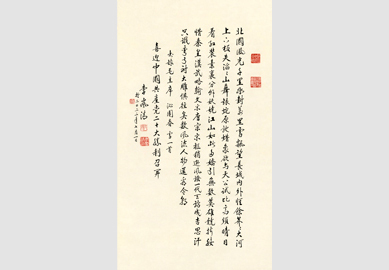 北國風光千里冰封萬里雪飄望長城內外惟餘莽莽大河
上下頓失滔滔山舞銀蛇原馳蠟象欲與天公試比高須晴日
看紅裝素裹分外妖嬈江山如此多嬌引無數英雄競折腰
惜秦皇漢武略輸文采唐宗宋祖稍遜風騷一代天驕成吉思汗
只識彎弓射大雕俱往矣數風流人物還看今朝
毛主席 沁園春 雪一首
喜迎中國共產黨二十大勝利召開